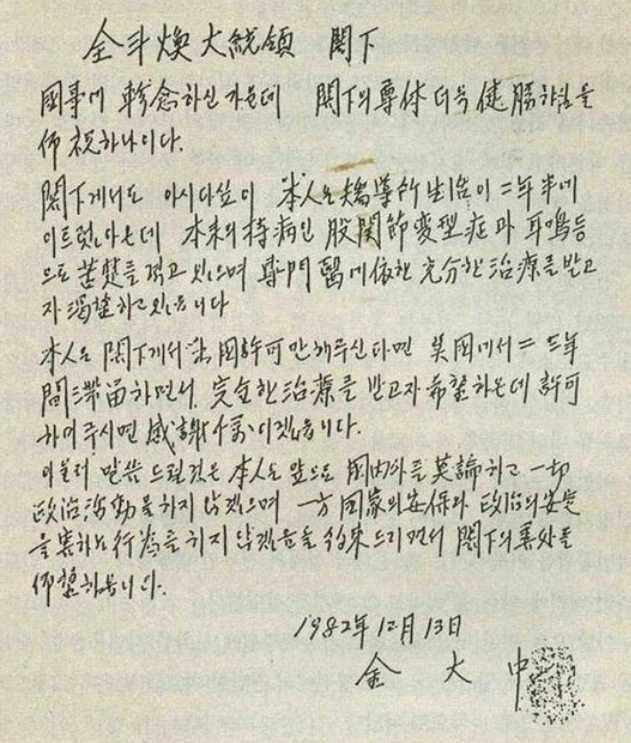 全斗煥大統領 閣下
國事에 軫念하신 가운데 閣下의 尊体 더욱 健勝하심을
仰祝하나이다.
閣下께서도 아시다싶이 本人은 矯導所生活이 二年半에
이르렀아온데 本来의 持病인 股関節変型症과 耳鳴등
으로 苦楚를 격고 있으며 專門醫에 依한 充分한 治療를 받고
자 渴望하고 있읍니다
本人은 閣下께서 出國許可만 해주신다면 美國에서 二 三年
間 滯留하면서 完全한 治療를 받고자 希望하온데 許可
하여 주시면 感謝千萬이겠읍니다.
아울러 말씀 드릴것은 本人은 앞으로 國内外를 莫論하고 一切
政治活動을 하지 않겠으며 一方 国家의 安保와 政治의 安定
을 害하는 行為를 하지 않겠음을 約束드리면서 閣下의 善処를
仰望하옵니다.
1982年 12月 13日
金 大 中